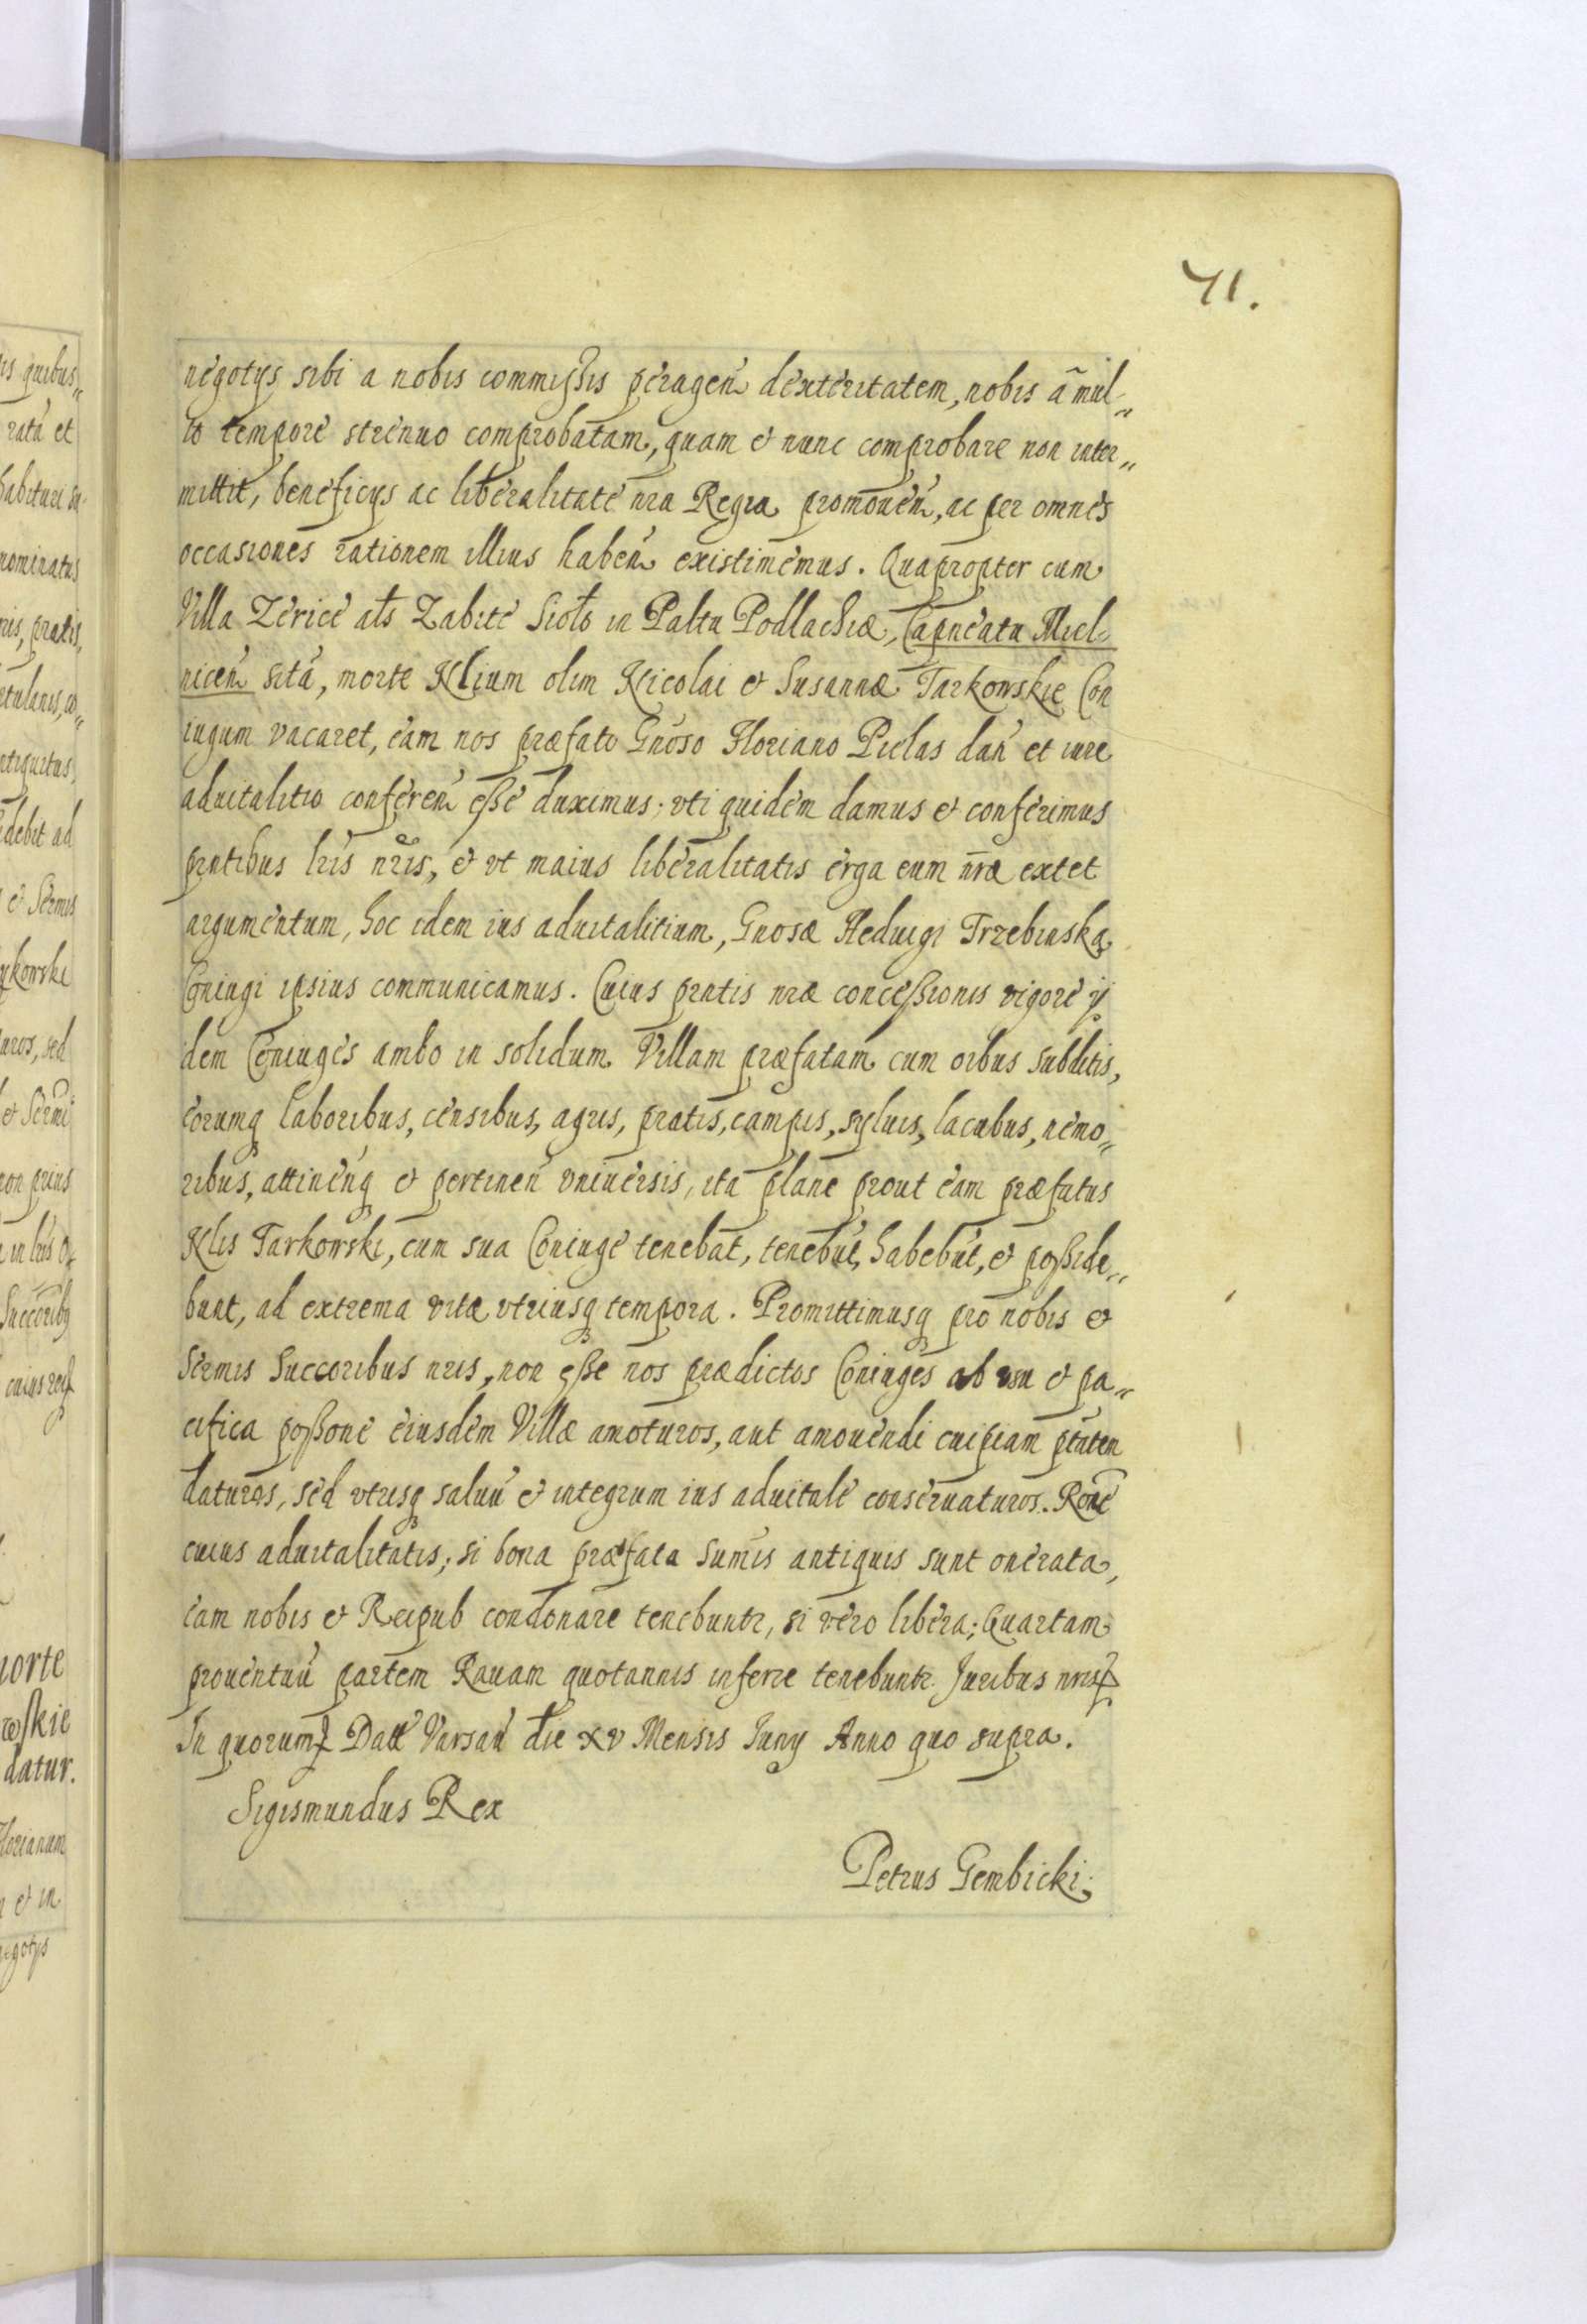 41.
negotijs sibi a nobis commissis peragen dexteritatem, nobis a mul„
to tempore strenuo comprobatam, quam et nunc comprobare non inter„
mittit, beneficijs ac liberalitate nra Regia promouen, ac per omnes
occasiones rationem illius haben existimemus. Quapropter cum
Villa Zerice als Zabite Sioło in Paltu Podlachiæ, Capneatu Miel„
nicen sita, morte Nlium olim Nicolai et Susannæ Tarkowskie Con
iugum vacaret, eam nos præfato Gnoso Floriano Pielas dan et iure
aduitalitio conferen esse duximus; vti quidem damus et conferimus
pntibus lris nris, et vt maius liberalitatis erga eum nræ extet
argumentum, hoc idem ius aduitalitium, Gnosæ Heduigi Trzebinska
Coniugi ipsius communicamus. Cuius pntis nræ concessionis vigore ij
dem Coniuges ambo in solidum Villam præfatam cum oibus subditis,
eorumq laboribus, censibus, agris, pratis, campis, syluis, lacubus, nemo„
ribus, attinenq et pertinen vniuersis, ita plane prout eam præfatus
Nlis Tarkowski, cum sua Coniuge tenebat, tenebut, habebut, et posside„
bunt, ad extrema vitæ vtriusq tempora. Promittimusq pro nobis et
Sermis Succoribus nris, non esse nos prædictos Coniuges ab vsu et pa„
cifica possone eiusdem Villæ amoturos, aut amouendi cuipiam ptatem
daturos, sed vtrisq saluu et integrum ius aduitale conseruaturos. Rone
cuius aduitalitatis; si bona præfata Sumis antiquis sunt onerata,
eam nobis et Reipub condonare tenebuntr, si vero libera; Quartam
prouentuu partem Rauam quotannis inferre tenebuntr. Juribus nris
In quorum Datt Varsau die xv Mensis Junij Anno quo supra.
Sigismundus Rex
Petrus Gembicki;